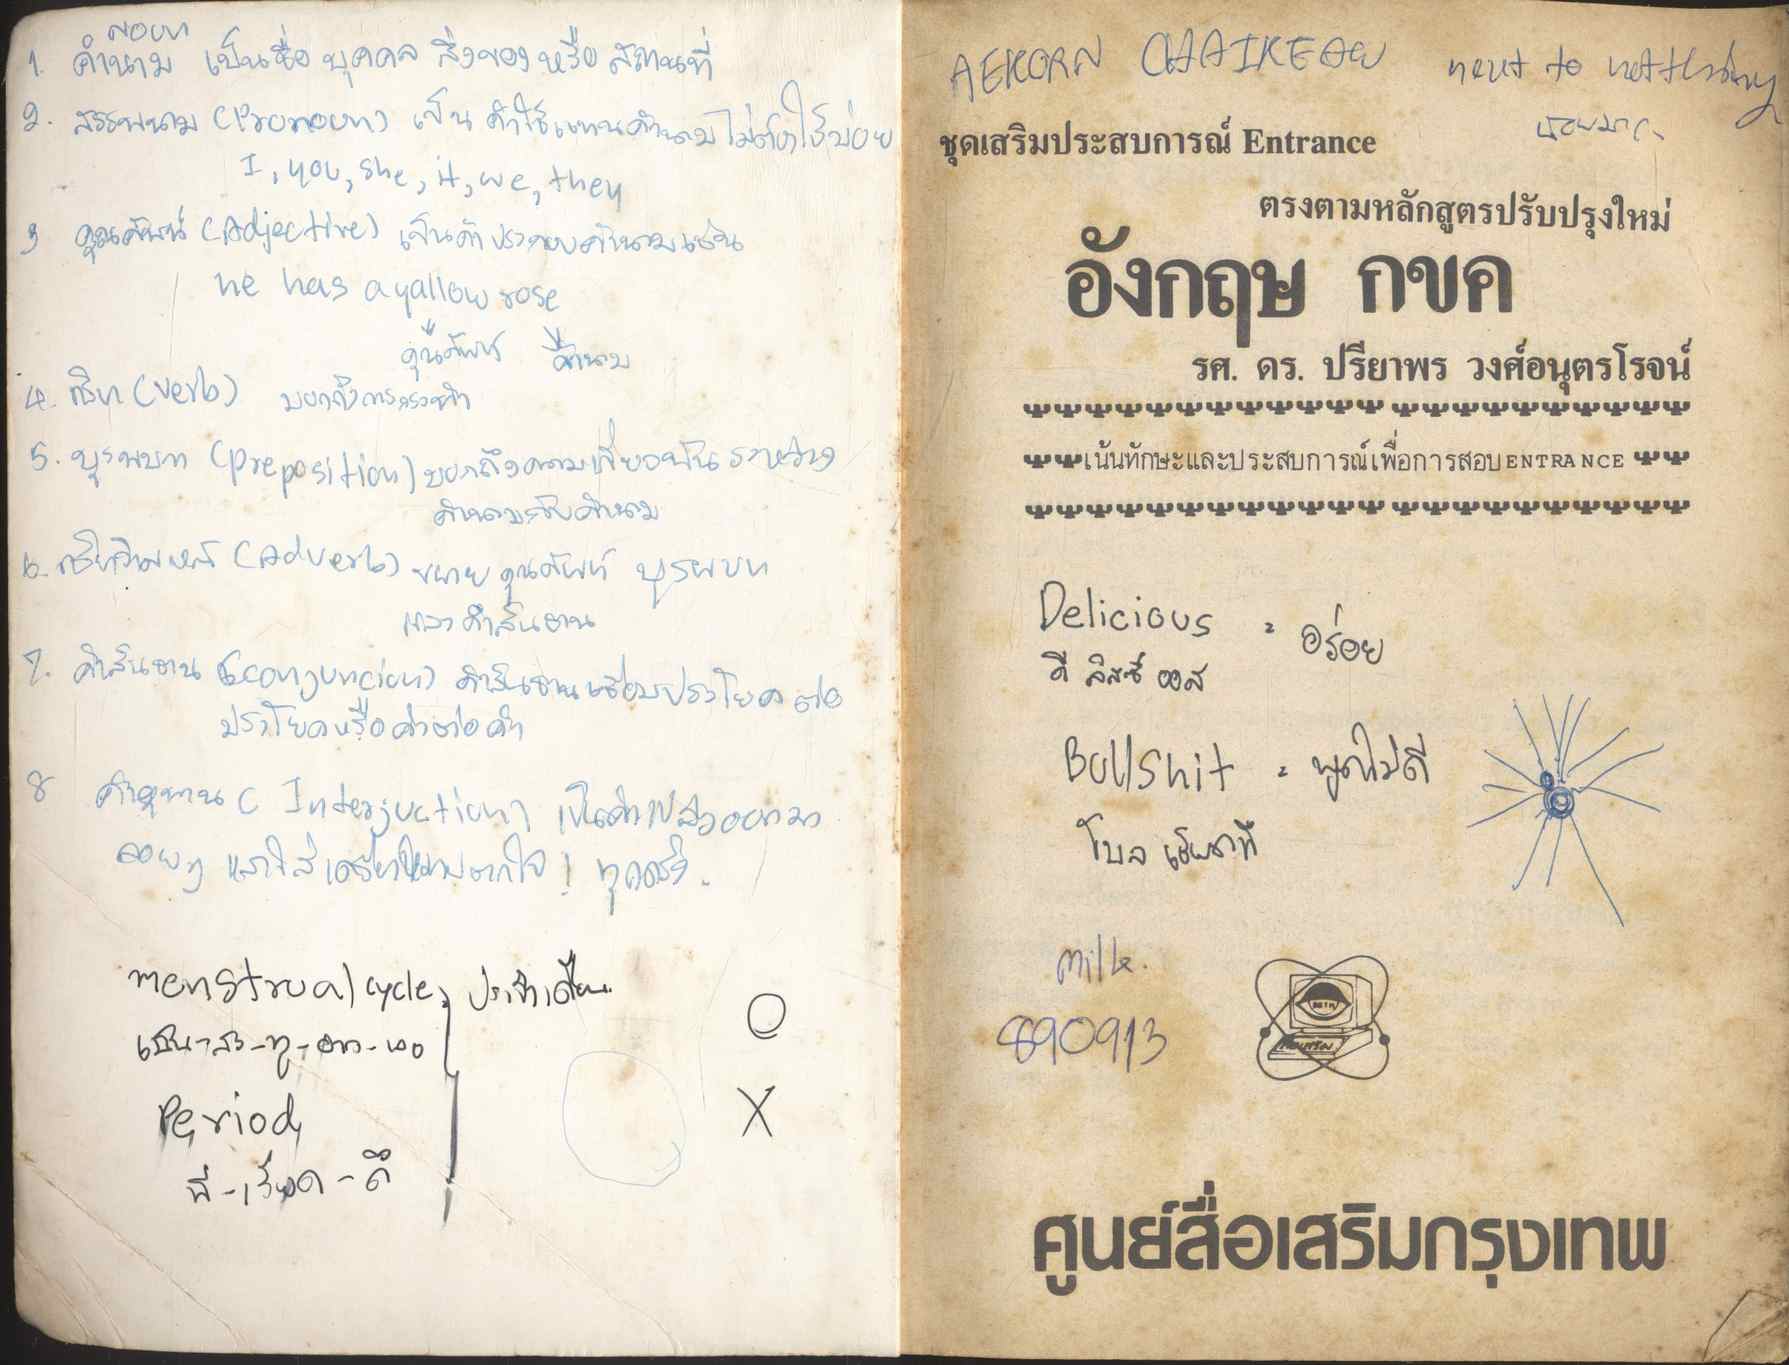 noun
1. คำนาม เป็นชื่อ บุคคล สิ่งของ หรือ สถานที่
2. สรรพนาม (Pronoun) เป็น คำใช้แทนคำนาม
I, you, she, it, we, they
3 คุณศัพน์ (Adjective) เป็นคำประกอบคำนาม เช่น
he has a yallow rose
คุณศัพท์ คำนาม
4. กริยา (verb) บอกถึงการกระทำ
5. บุรพบท (preposition) บอกถึงความเกี่ยวพัน ระหว่าง
คำนามกับคำนาม
6. กริยาวิเศษณ์ (Adverb) ขยาย คุณศัพท์ บุรพบท
และ คำสันธาน
7. คำสันธาน (conjuncion) คำสันธาน เชื่อมประโยค ต่อ
ประโยค หรือ คำต่อ คำ
8 คำอุทาน ( Interjuction) เป็นคำเปล่งออกมา
ลอยๆ และใส่เครื่องหมายตกใจ ! ทุกครั้ง.
menstrual cycle, ประจำเดือน
Period,
O
X
AEKORN CHAIKEAW next to
ชุดเสริมประสบการณ์ Entrance
ตรงตามหลักสูตรปรับปรุงใหม่
อังกฤษ กขค
รศ. ดร. ปรียาพร วงศ์อนุตรโรจน์
เน้นทักษะและประสบการณ์เพื่อการสอบ ENTRANCE
Delicious = อร่อย
ดี ลิสซี ออส
Bullshit = พูดไม่ดี
milk.
890913
ศูนย์สื่อเสริมกรุงเทพ